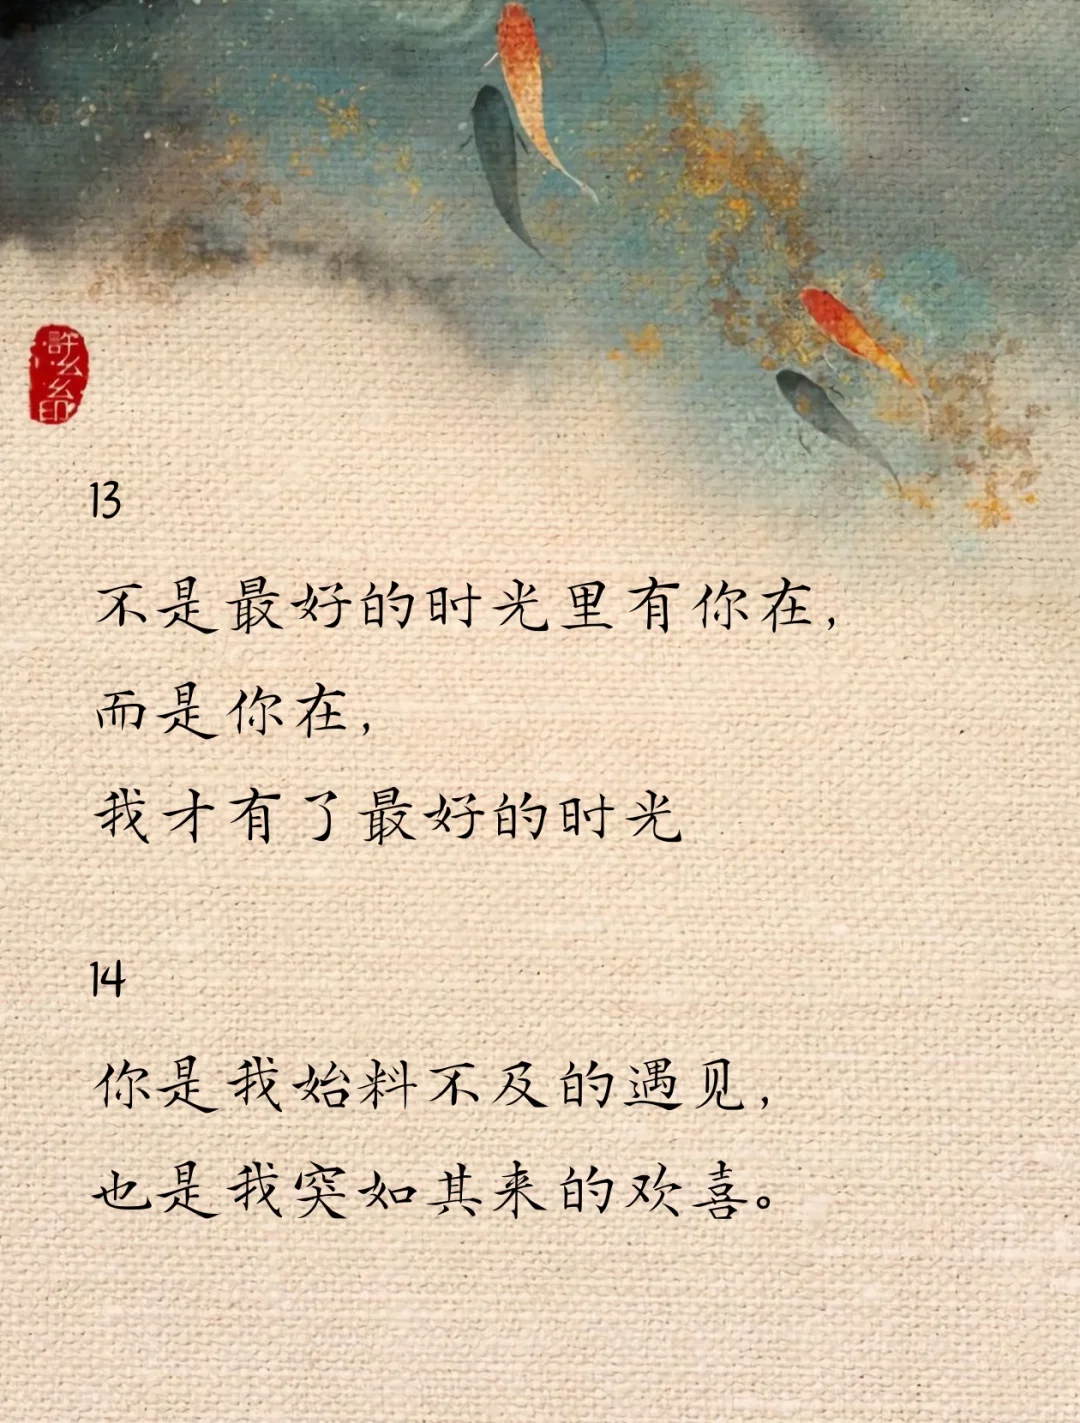 許
么
么
印
13
不是最好的时光里有你在,
而是你在,
我才有了最好的时光
14
你是我始料不及的遇见,
也是我突如其来的欢喜。